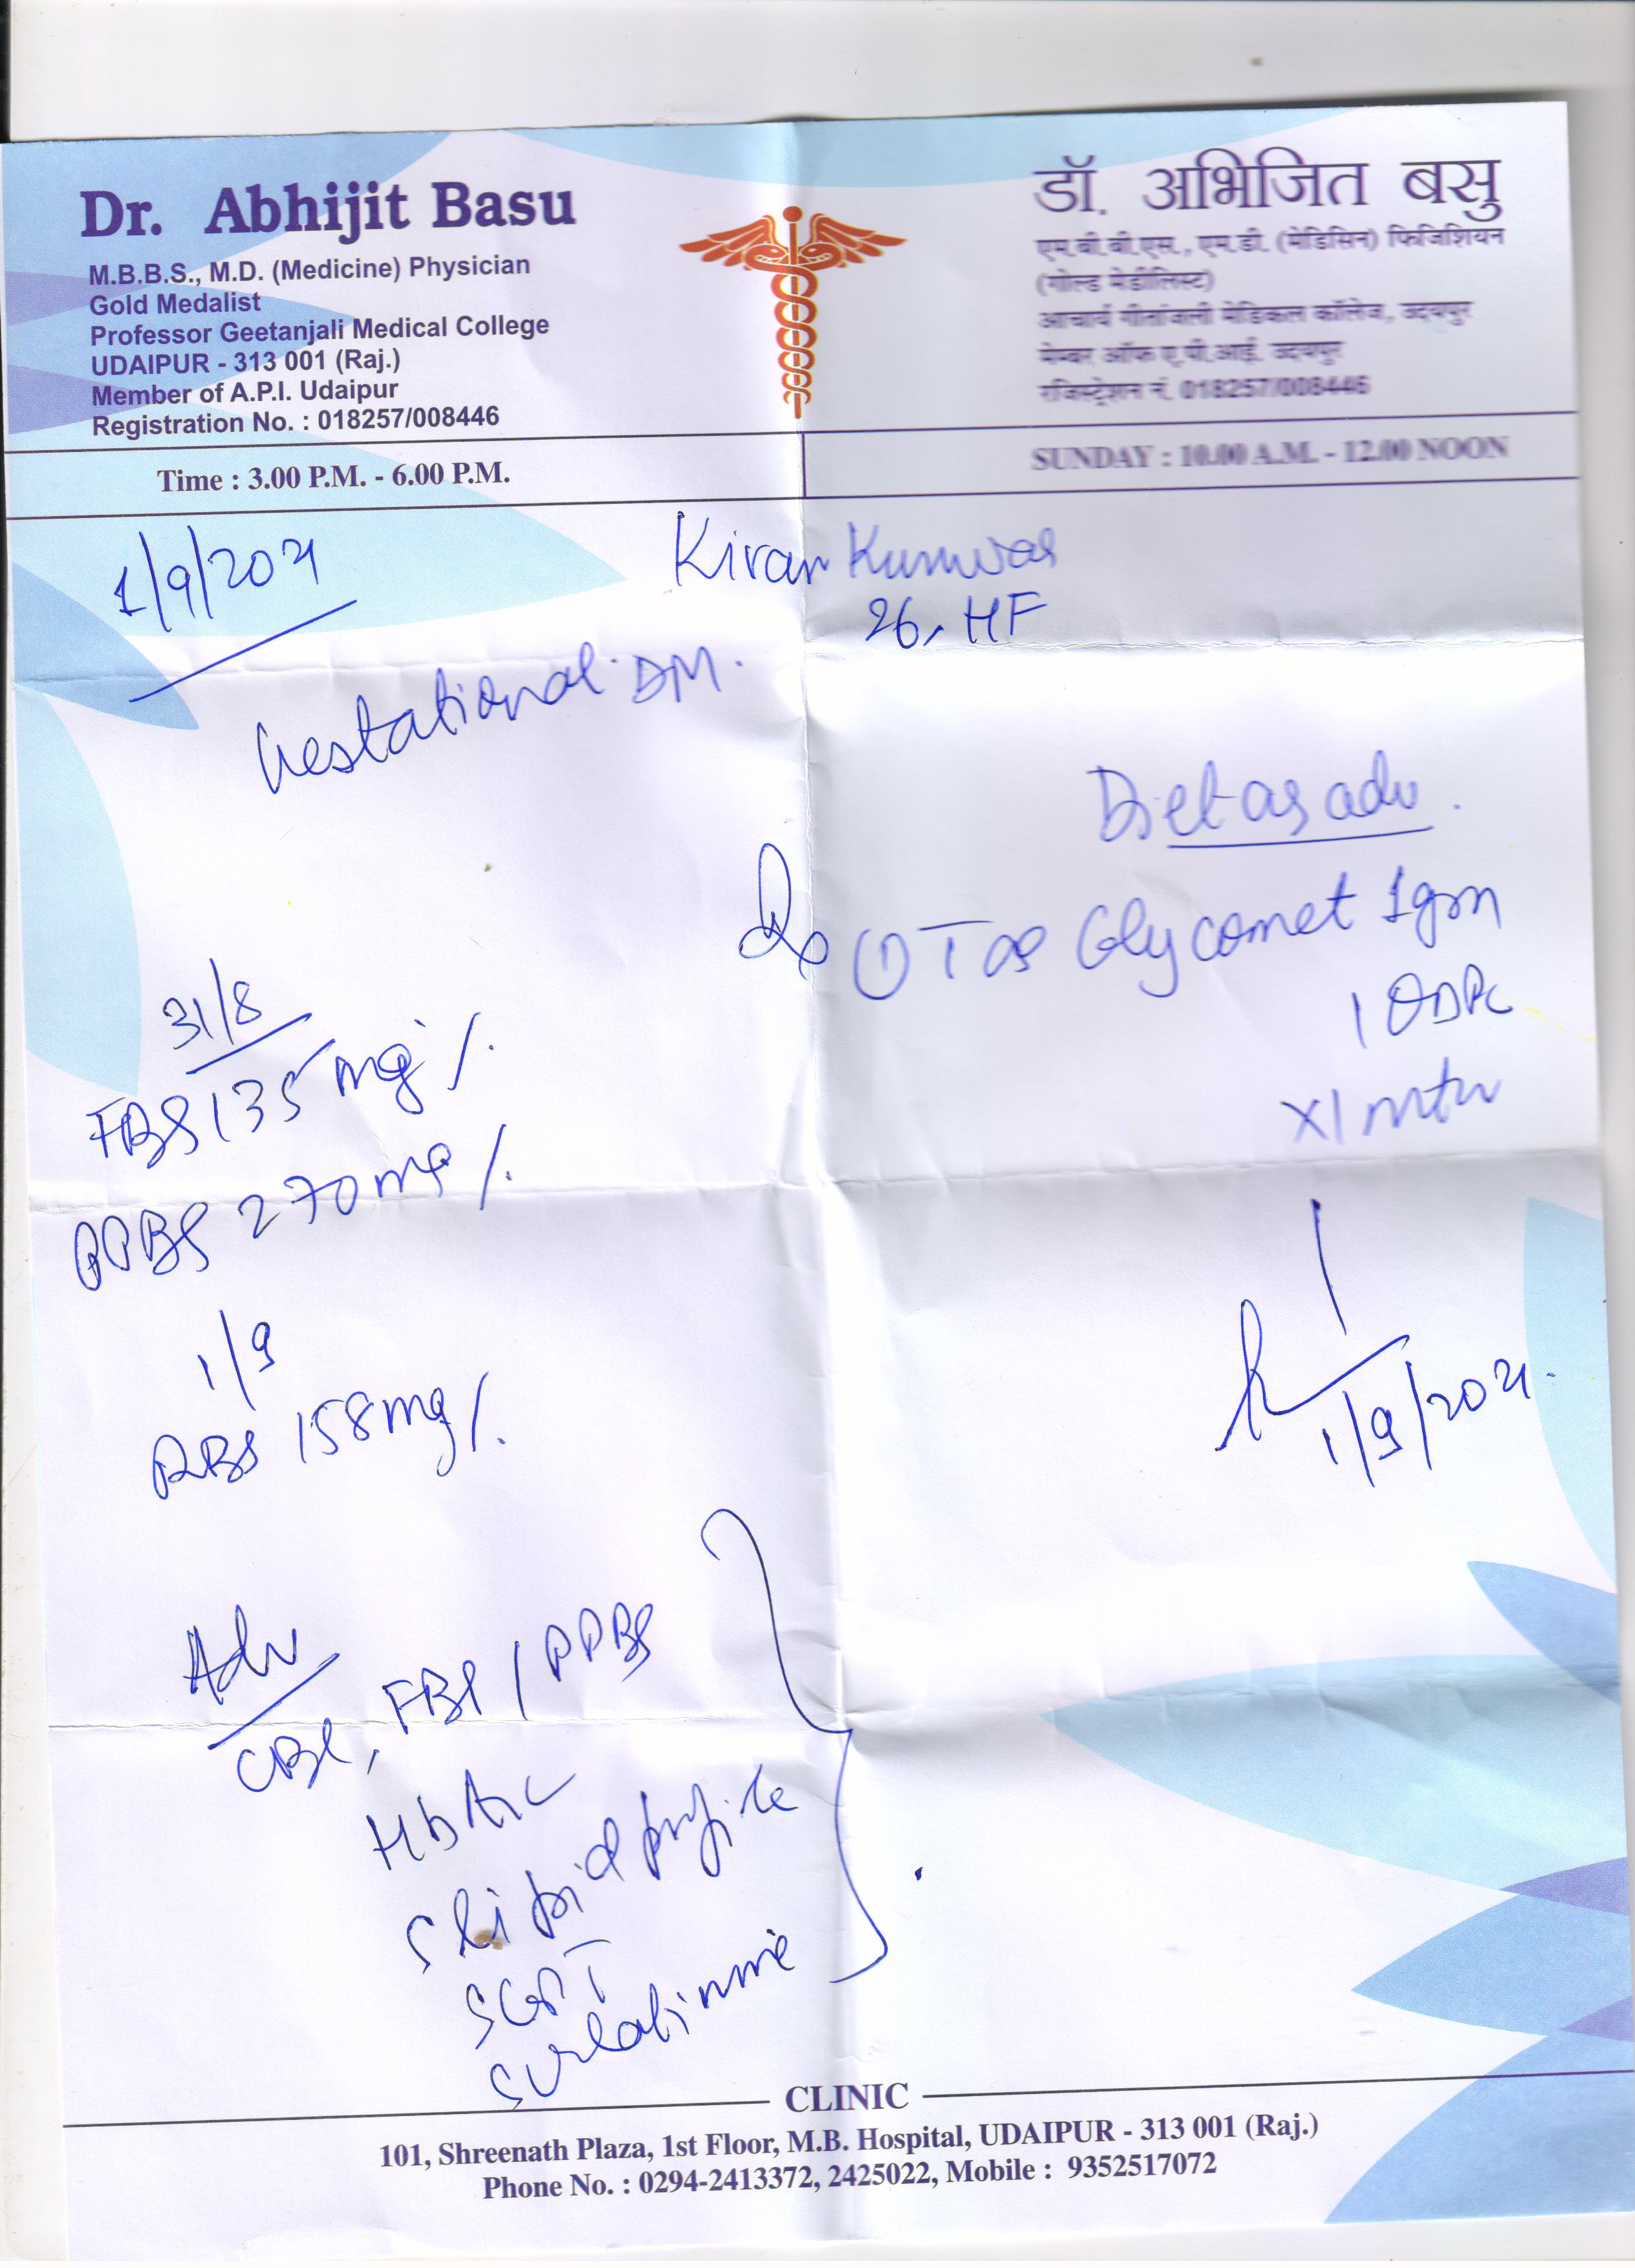 Dr. Abhijit Basu
M.B.B.S., M.D. (Medicine) Physician
Gold Medalist
Professor Geetanjali Medical College
UDAIPUR - 313 001 (Raj.)
Member of A.P.I. Udaipur
Registration No. : 018257/008446
डॉ. अभिजित बसु
एम.बी.बी.एस., एम.डी. (मेडिसिन) फिजिशियन
(गोल्ड मेडीलिस्ट)
आचार्य गीतांजली मेडिकल कॉलेज, उदयपुर
मेम्बर ऑफ ए.पी.आई. उदयपुर
रजिस्ट्रेशन नं. 018257/008446
Time : 3.00 P.M. - 6.00 P.M.
SUNDAY : 10.00 A.M. - 12.00 NOON
1/9/2021
Kiran Kunwar
26, HF
Gestational DM.
Diet as adv.
Rx (1) Tab Glycomet 1gm
1 OD PC
X 1 mth
31/8
FBS 135 mg%
PPBS 270 mg%
1/9
RBS 158 mg%
1/9/2021.
Adv
CBC, FBS / PPBS
HbA1C
S lipid profile
SGPT
S creatinine
CLINIC
101, Shreenath Plaza, 1st Floor, M.B. Hospital, UDAIPUR - 313 001 (Raj.)
Phone No. : 0294-2413372, 2425022, Mobile : 9352517072